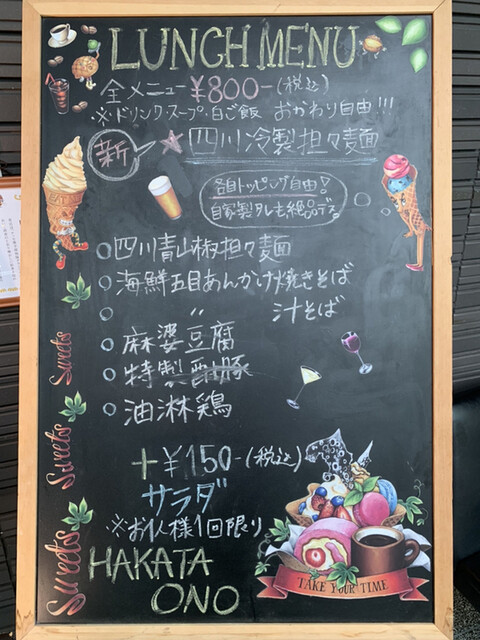 LUNCH MENU
全メニュー ¥800-(税込)
※・ドリンク・スープ・白ご飯 おかわり自由!!!
新 ★ 四川冷製担々麺
各自トッピング自由!
自家製タレも絶品デス。
○四川青山椒担々麺
○海鮮五目あんかけ焼きそば
○ 〃 汁そば
○麻婆豆腐
○特製酢豚
○油淋鶏
+¥150-(税込)
サラダ
※お1人様1回限り
HAKATA
ONO
Sweets
Sweets
Sweets
TAKE YOUR TIME